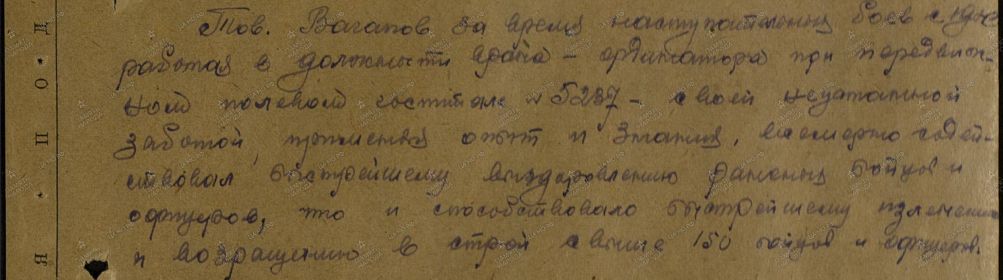 Тов. Вагапов за время наступательных боев с
работая в должности врача - ординатора при передвиж-
ном полевом госпитале № 5237 - своей неустанной
заботой, применяя опыт и знания, всемерно содей-
ствовал быстрейшему выздоровлению раненых бойцов и
офицеров, что и способствовало быстрейшему излечению
и возращению в строй свыше 150 бойцов и офицеров.
Я . П О . Д